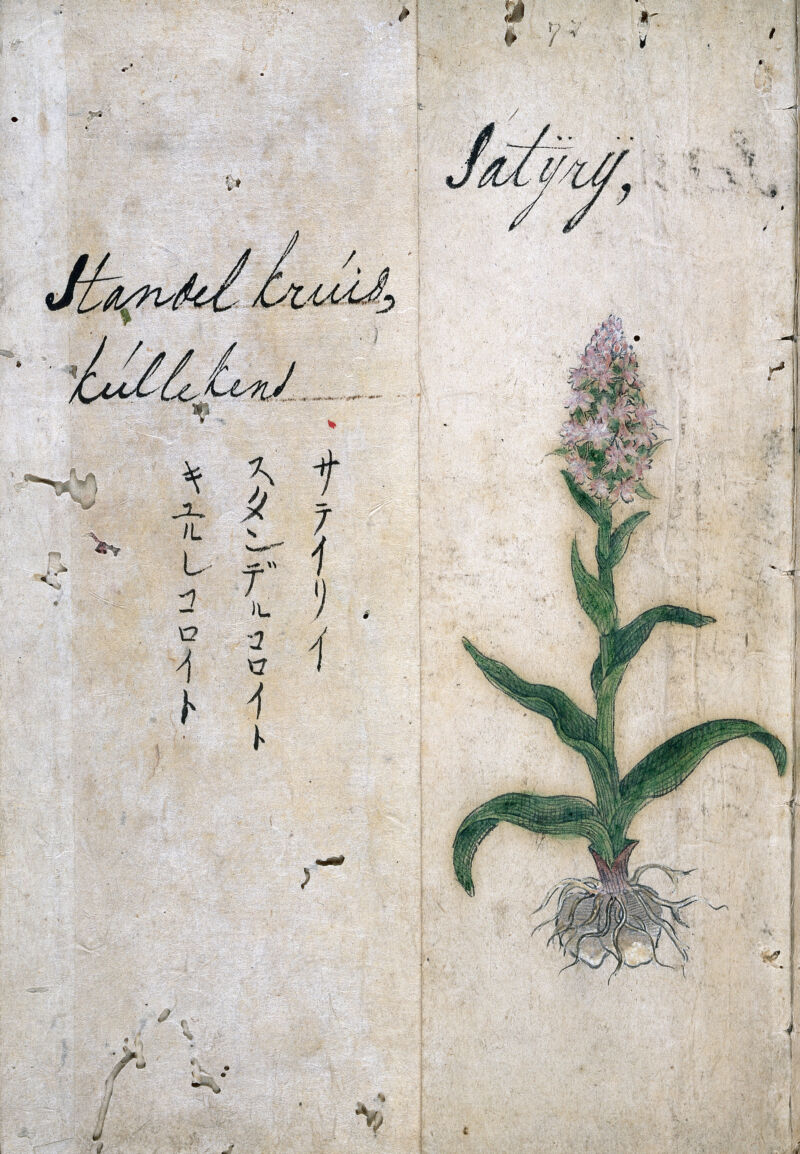 Sátÿrÿ,
Standel krúid,
kúllekens
サテイリイ
スタンデルコロイト
キユルレコロイト